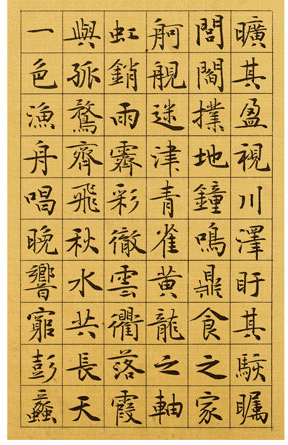 曠其盈視川澤盱其駭矚
閭閻撲地鐘鳴鼎食之家
舸艦迷津青雀黃龍之軸
虹銷雨霽彩徹雲衢落霞
與孤鶩齊飛秋水共長天
一色漁舟唱晚響窮彭蠡